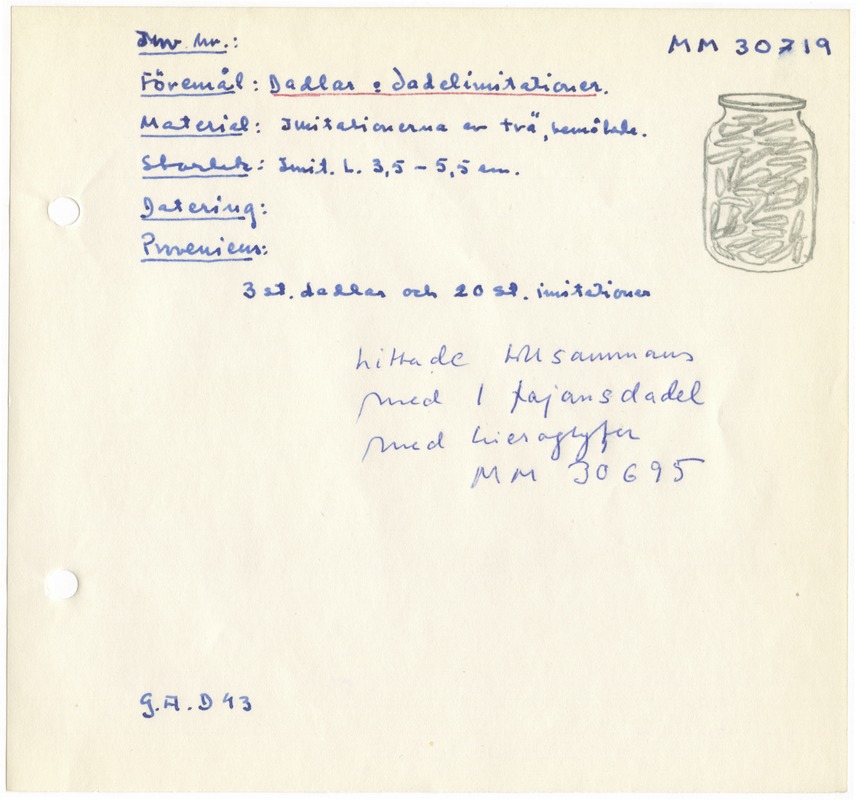 Inv. nr.: MM 30719
Föremål: Dadlar o dadelimitationer.
Material: Imitationerna av trä, bemålade.
Storlek: Imit. L. 3,5 – 5,5 cm.
Datering:
Proveniens:
3 st. dadlar och 20 st. imitationer
hittade tillsammans
med 1 fajansdadel
med hieroglyfer
MM 30695
G.A.D 43